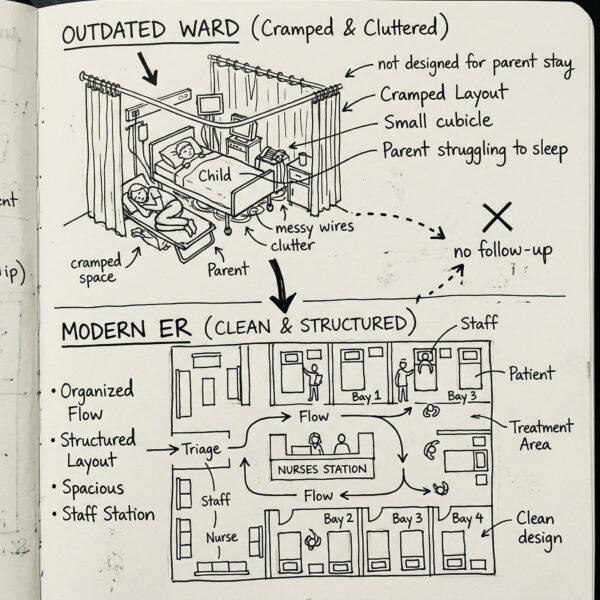 OUTDATED WARD (Cramped & Cluttered)
not designed for parent stay
Cramped Layout
Small cubicle
Parent struggling to sleep
Child
messy wires
clutter
cramped
space
Parent
no follow-up
ent
ip)
MODERN ER (CLEAN & STRUCTURED)
Staff
• Organized
Flow
• Structured
Layout
• Spacious
• Staff Station
Bay 1
Bay 3
Patient
Flow
Treatment
Area
Triage
NURSES STATION
Staff
Flow
Nurse
Bay 2
Bay 3
Bay 4
Clean
design